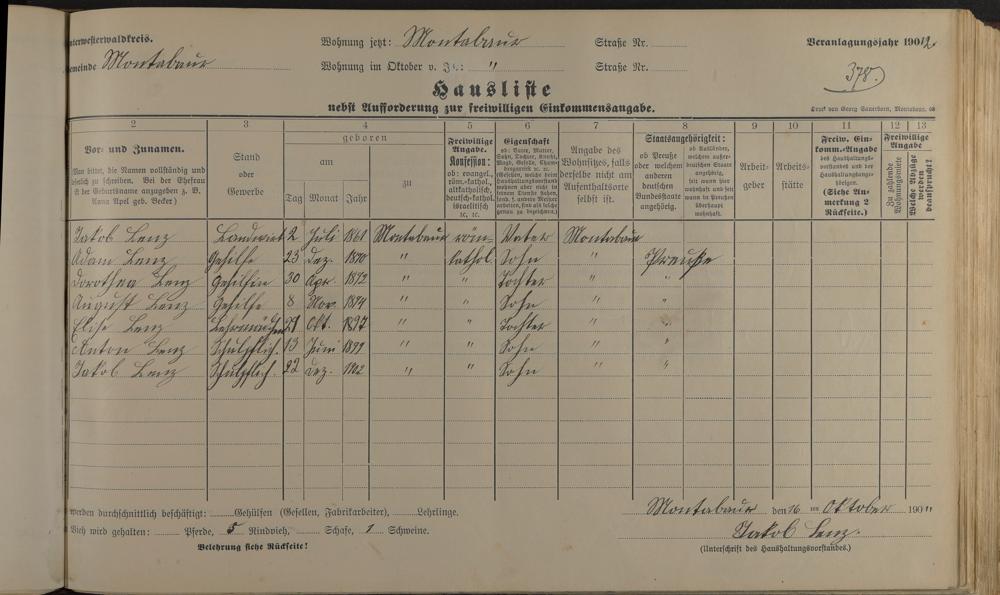 nterwesterwaldkreis.
Wohnung jetzt: Montabaur
Straße Nr.
Veranlagungsjahr 1912.
emeinde Montabaur
Wohnung im Oktober v. Js.: "
Straße Nr.
378.
Hausliste
nebst Aufforderung zur freiwilligen Einkommensangabe.
Druck von Georg Sauerborn, Montabaur.
2 3 4 5 6 7 8 9 10 11 12 13
Vor- und Zunamen.
Man bittet, die Namen vollständig und
leserlich zu schreiben. Bei der Ehefrau
ist der Geburtsname anzugeben z. B.
Anna Apel geb. Becker)
Stand
oder
Gewerbe
geboren
am
Tag Monat Jahr
zu
Freiwillige
Angabe.
Konfession:
ob: evangel.,
röm.-kathol.,
altkatholisch,
deutsch-kathol.
israelitisch
ec. ec.
Eigenschaft
ob: Vater, Mutter,
Sohn, Tochter, Knecht,
Magd, Geselle,
Angabe des
Wohnsitzes, falls
derselbe nicht am
Aufenthaltsorte
selbst ist.
Staatsangehörigkeit:
ob Preuße
oder welchem
anderen
deutschen
Bundesstaate
angehörig.
ob Ausländer,
welchem außer-
deutschen Staate
angehörig,
seit wann hier
wohnhaft und seit
wann in Preußen
überhaupt
wohnhaft.
Arbeit-
geber
Arbeits-
stätte
Freiw. Ein-
komm.-Angabe
des Haushaltungs-
vorstandes und der
Haushaltungsange-
hörigen.
(Siehe An-
merkung 2
Rückseite.)
Freiwillige
Angabe
Zu zahlende
Wohnungsmiete
Welche Abzüge
werden
beansprucht?
Jakob Lenz Landwirt 2 Juli 1861 Montabaur röm- Vater Montabaur
Adam Lenz Gehilfe 23 Dez. 1890 " kathol. Sohn " Preuße
Dorothea Lenz Gehilfin 30 Apr. 1892 " " Tochter " "
August Lenz Gehilfe 8 Nov. 1894 " " Sohn " "
Elise Lenz 29 Okt. 1897 " " Tochter " "
Anton Lenz Schulpflich. 13 Juni 1899 " " Sohn " "
Jakob Lenz Schulpflich. 22 Dez. 1902 " " Sohn " "
werden durchschnittlich beschäftigt: Gehülfen (Gesellen, Fabrikarbeiter), Lehrlinge.
Montabaur den 16 ten Oktober 1911
Vieh wird gehalten: Pferde, 5 Rindvieh, Schafe, 1 Schweine.
Jakob Lenz.
Belehrung siehe Rückseite!
(Unterschrift des Haushaltungsvorstandes.)